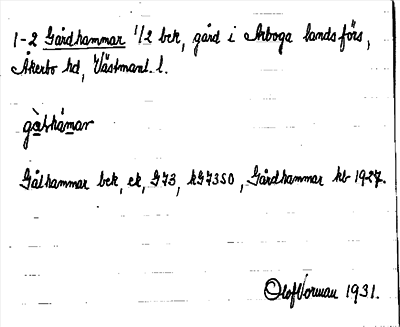 1-2 Gårdhammar 1/2 bek, gård i Arboga landsförs,
Åkerbo hd, Västmanl. l.
gå̀shámar
Gålhammar bek, ek, G73, kG7350, Gårdhammar kb 1927.
Olof Vorman 1931.